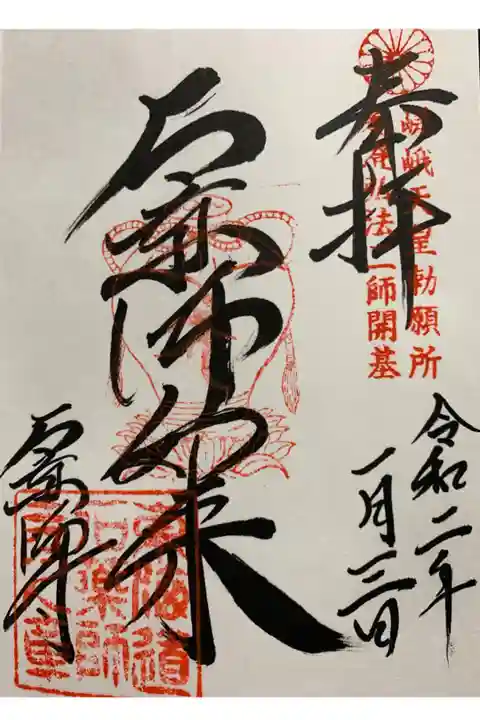 奉拝
嵯峨天皇勅願所
弘法大師開基
石薬師如来
令和二年
一月三日
石薬師寺
東海道
石薬師